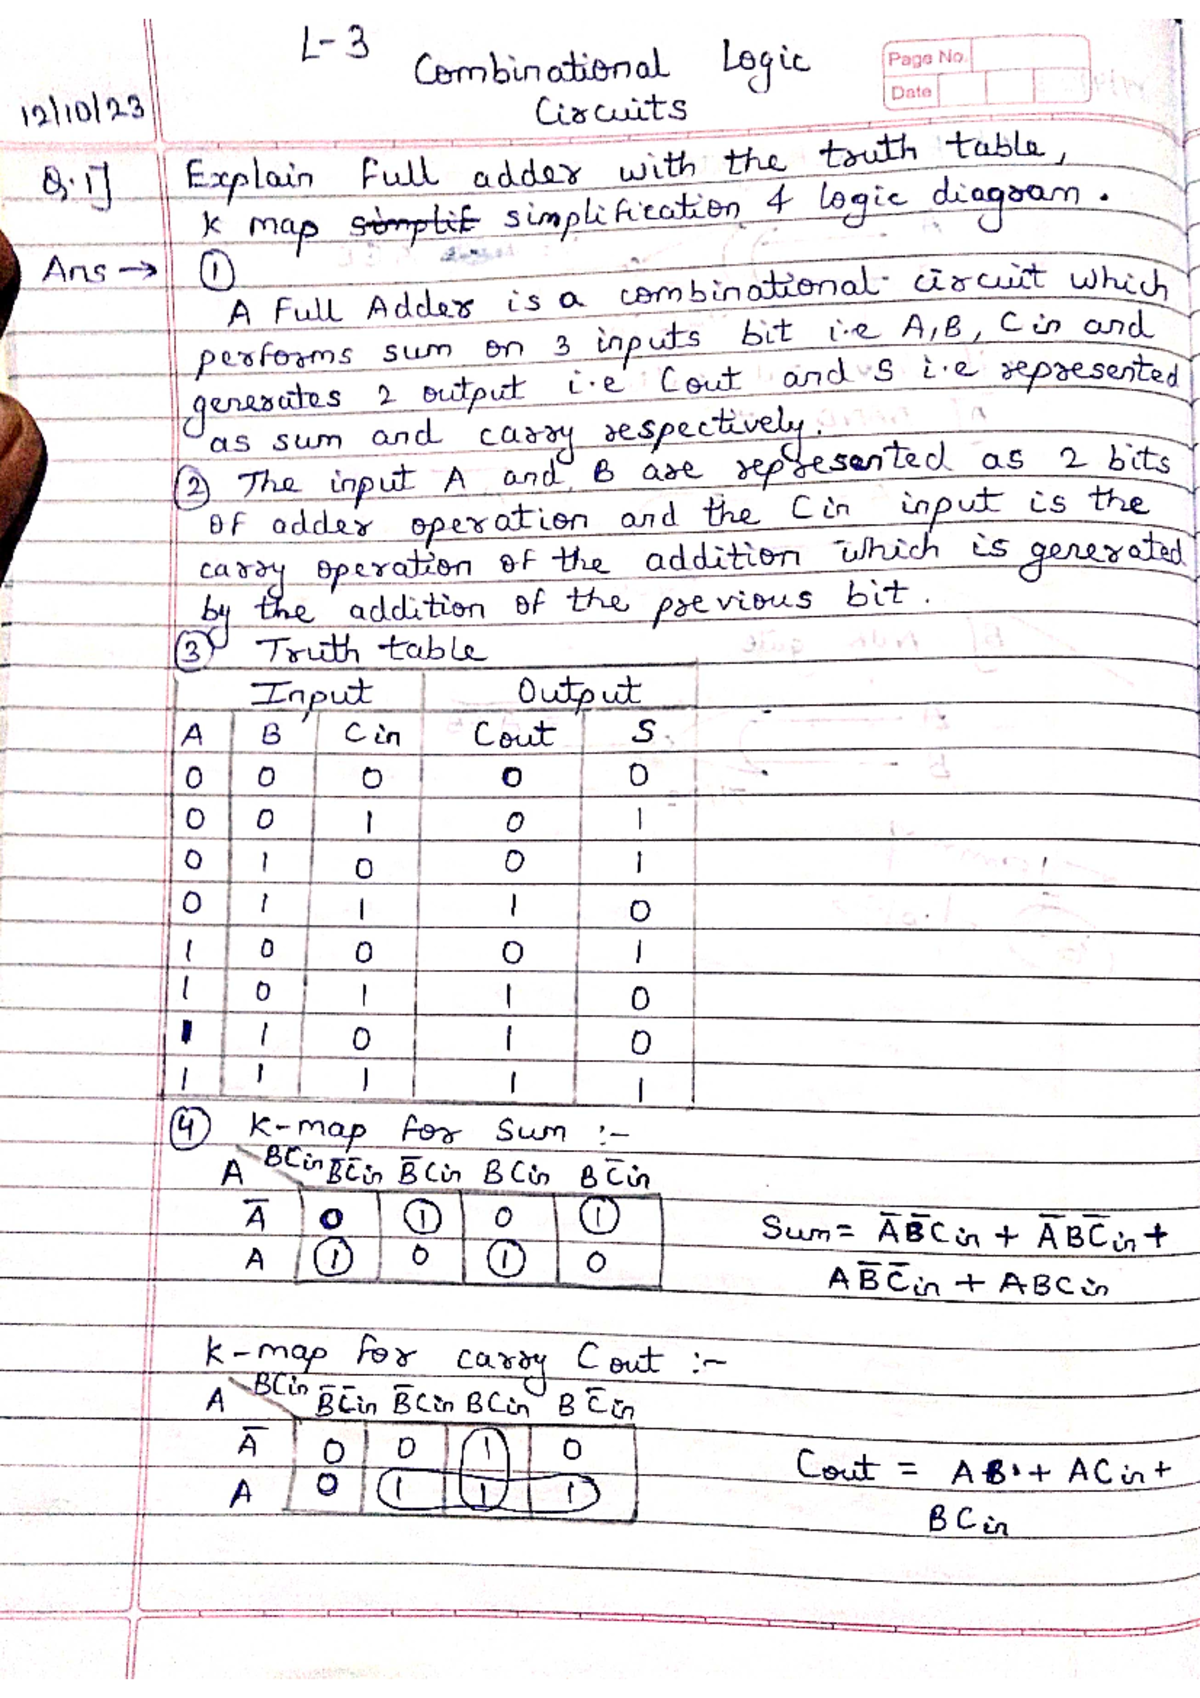 L-3
Combinational Logic
Circuits
Page No.
Date
12/10/23
Q.1] Explain Full adder with the truth table,
K map simplif simplification & logic diagram.
Ans → ①
A Full Adder is a combinational circuit which
performs sum on 3 inputs bit i.e A,B, Cin and
generates 2 output i.e Cout and S i.e represented
as sum and carry respectively.
② The input A and B are represented as 2 bits
of adder operation and the Cin input is the
carry operation of the addition which is generated
by the addition of the previous bit.
③ Truth table
Input Output
A B Cin Cout S
0 0 0 0 0
0 0 1 0 1
0 1 0 0 1
0 1 1 1 0
1 0 0 0 1
1 0 1 1 0
1 1 0 1 0
1 1 1 1 1
④ K-map for Sum :-
A BCin B̅C̅in B̅Cin BCin BC̅in
A̅ 0 1 0 1
A 1 0 1 0
Sum = A̅B̅Cin + A̅BC̅in +
AB̅C̅in + ABCin
K-map for carry Cout :-
A BCin B̅C̅in B̅Cin BCin BC̅in
A̅ 0 0 1 0
A 0 1 1 1
Cout = AB + ACin +
BCin